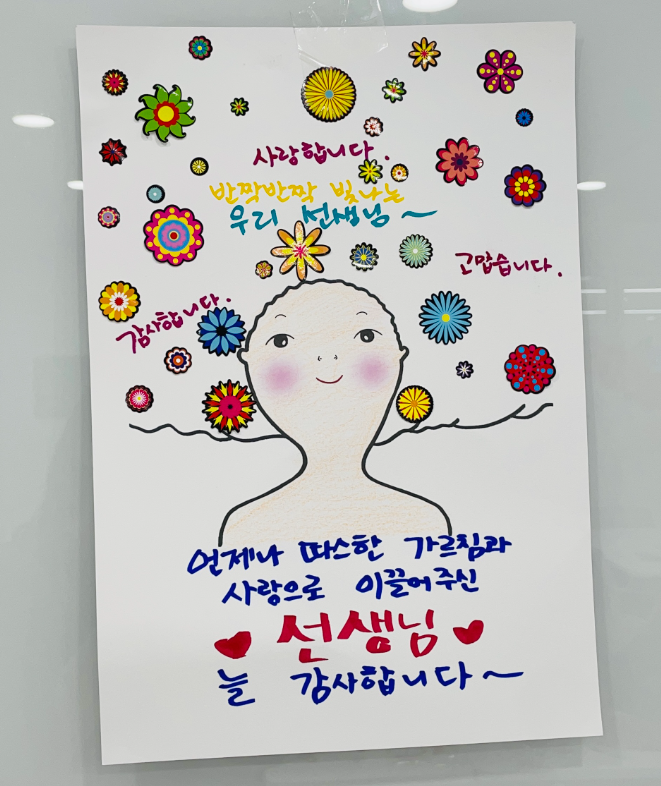 사랑합니다.
반짝반짝 빛나는
우리 선생님~
고맙습니다.
감사합니다.
언제나 따스한 가르침과
사랑으로 이끌어주신
♥ 선생님 ♥
늘 감사합니다~